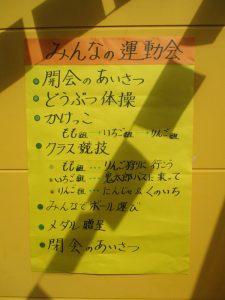 みんなの運動会
開会のあいさつ
どうぶつ体操
かけっこ
もも組→いちご組→りんご組
クラス競技
もも組…りんご狩りに行こう
いちご組…鬼太郎バスに乗って
りんご組…にんじゃ&くのいち
みんなでボール運び
メダル贈呈
閉会のあいさつ